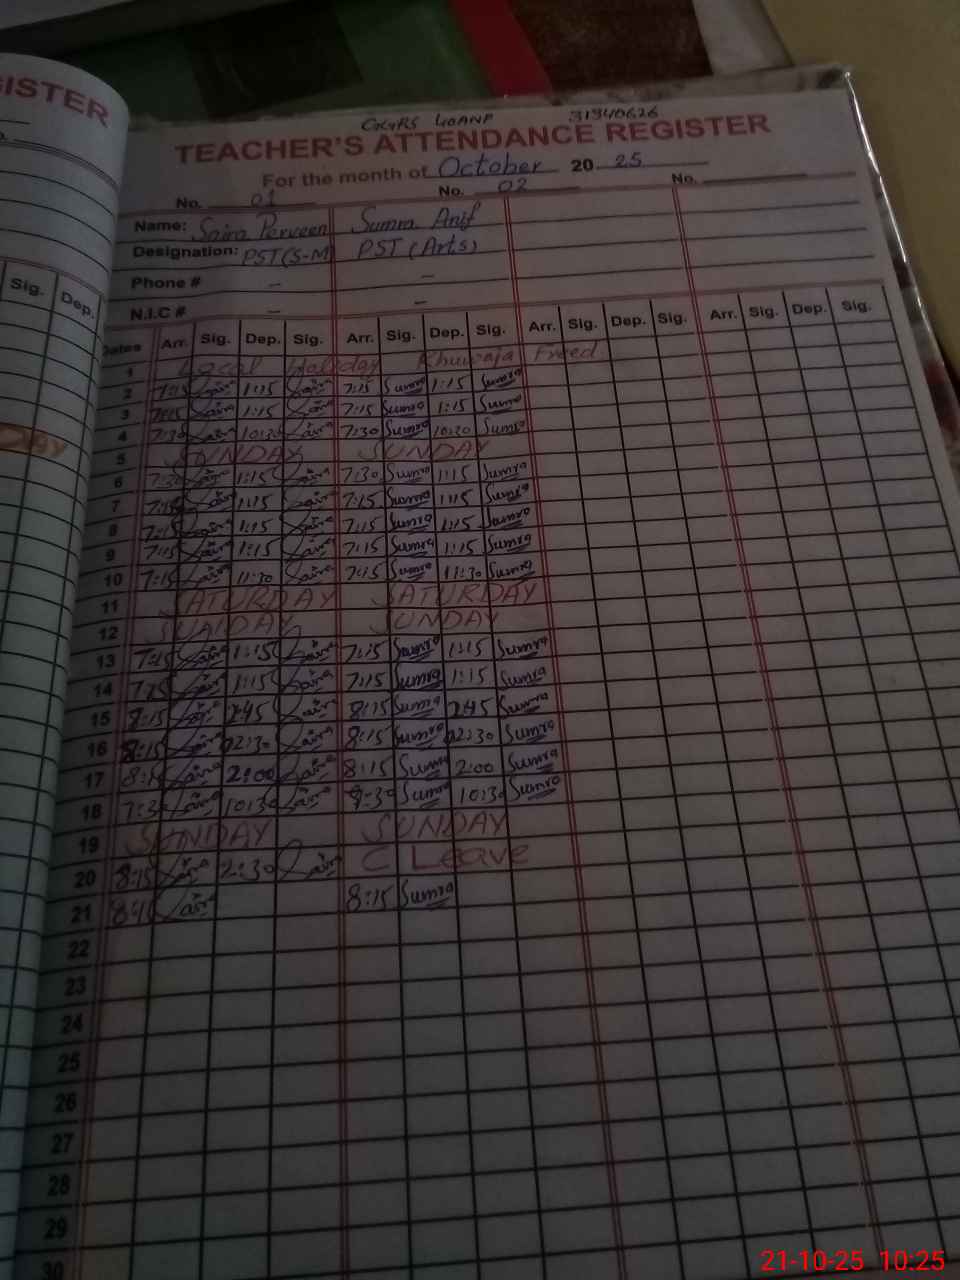 GISTER
31340626
TEACHER'S ATTENDANCE REGISTER
For the month of October 20 25
No. 01 No. 02 No.
Name: Saira Perveen Sumra
Designation: PST(S-M) PST (Arts)
Phone # - -
N.I.C # - -
Sig. Dep.
Dates Arr. Sig. Dep. Sig. Arr. Sig. Dep. Sig. Arr. Sig. Dep. Sig. Arr. Sig. Dep. Sig.
1 Local Holiday Khuwaja Freed
2 7:15 Saira 1:15 Saira 7:15 Sumra 1:15 Sumra
3 7:15 Saira 1:15 Saira 7:15 Sumra 1:15 Sumra
4 7:30 Saira 10:30 Saira 7:30 Sumra 10:30 Sumra
5 SUNDAY SUNDAY
6 7:30 Saira 1:15 Saira 7:30 Sumra 1:15 Sumra
7 7:15 Saira 1:15 Saira 7:15 Sumra 1:15 Sumra
8 7:15 Saira 1:15 Saira 7:15 Sumra 1:15 Sumra
9 7:15 Saira 1:15 Saira 7:15 Sumra 1:15 Sumra
10 7:15 Saira 11:30 Saira 7:15 Sumra 11:30 Sumra
11 SATURDAY SATURDAY
12 SUNDAY SUNDAY
13 7:15 Saira 1:15 Saira 7:15 Sumra 1:15 Sumra
14 7:15 Saira 1:15 Saira 7:15 Sumra 1:15 Sumra
15 8:15 Saira 2:45 Saira 8:15 Sumra 2:45 Sumra
16 8:15 Saira 02:30 Saira 8:15 Sumra 02:30 Sumra
17 8:15 Saira 2:00 Saira 8:15 Sumra 2:00 Sumra
18 7:30 Saira 10:30 Saira 7:30 Sumra 10:30 Sumra
19 SUNDAY SUNDAY
20 8:15 Saira 2:30 Saira C Leave
21 Saira 8:15 Sumra
22
23
24
25
26
27
28
29
30
21-10-25 10:25